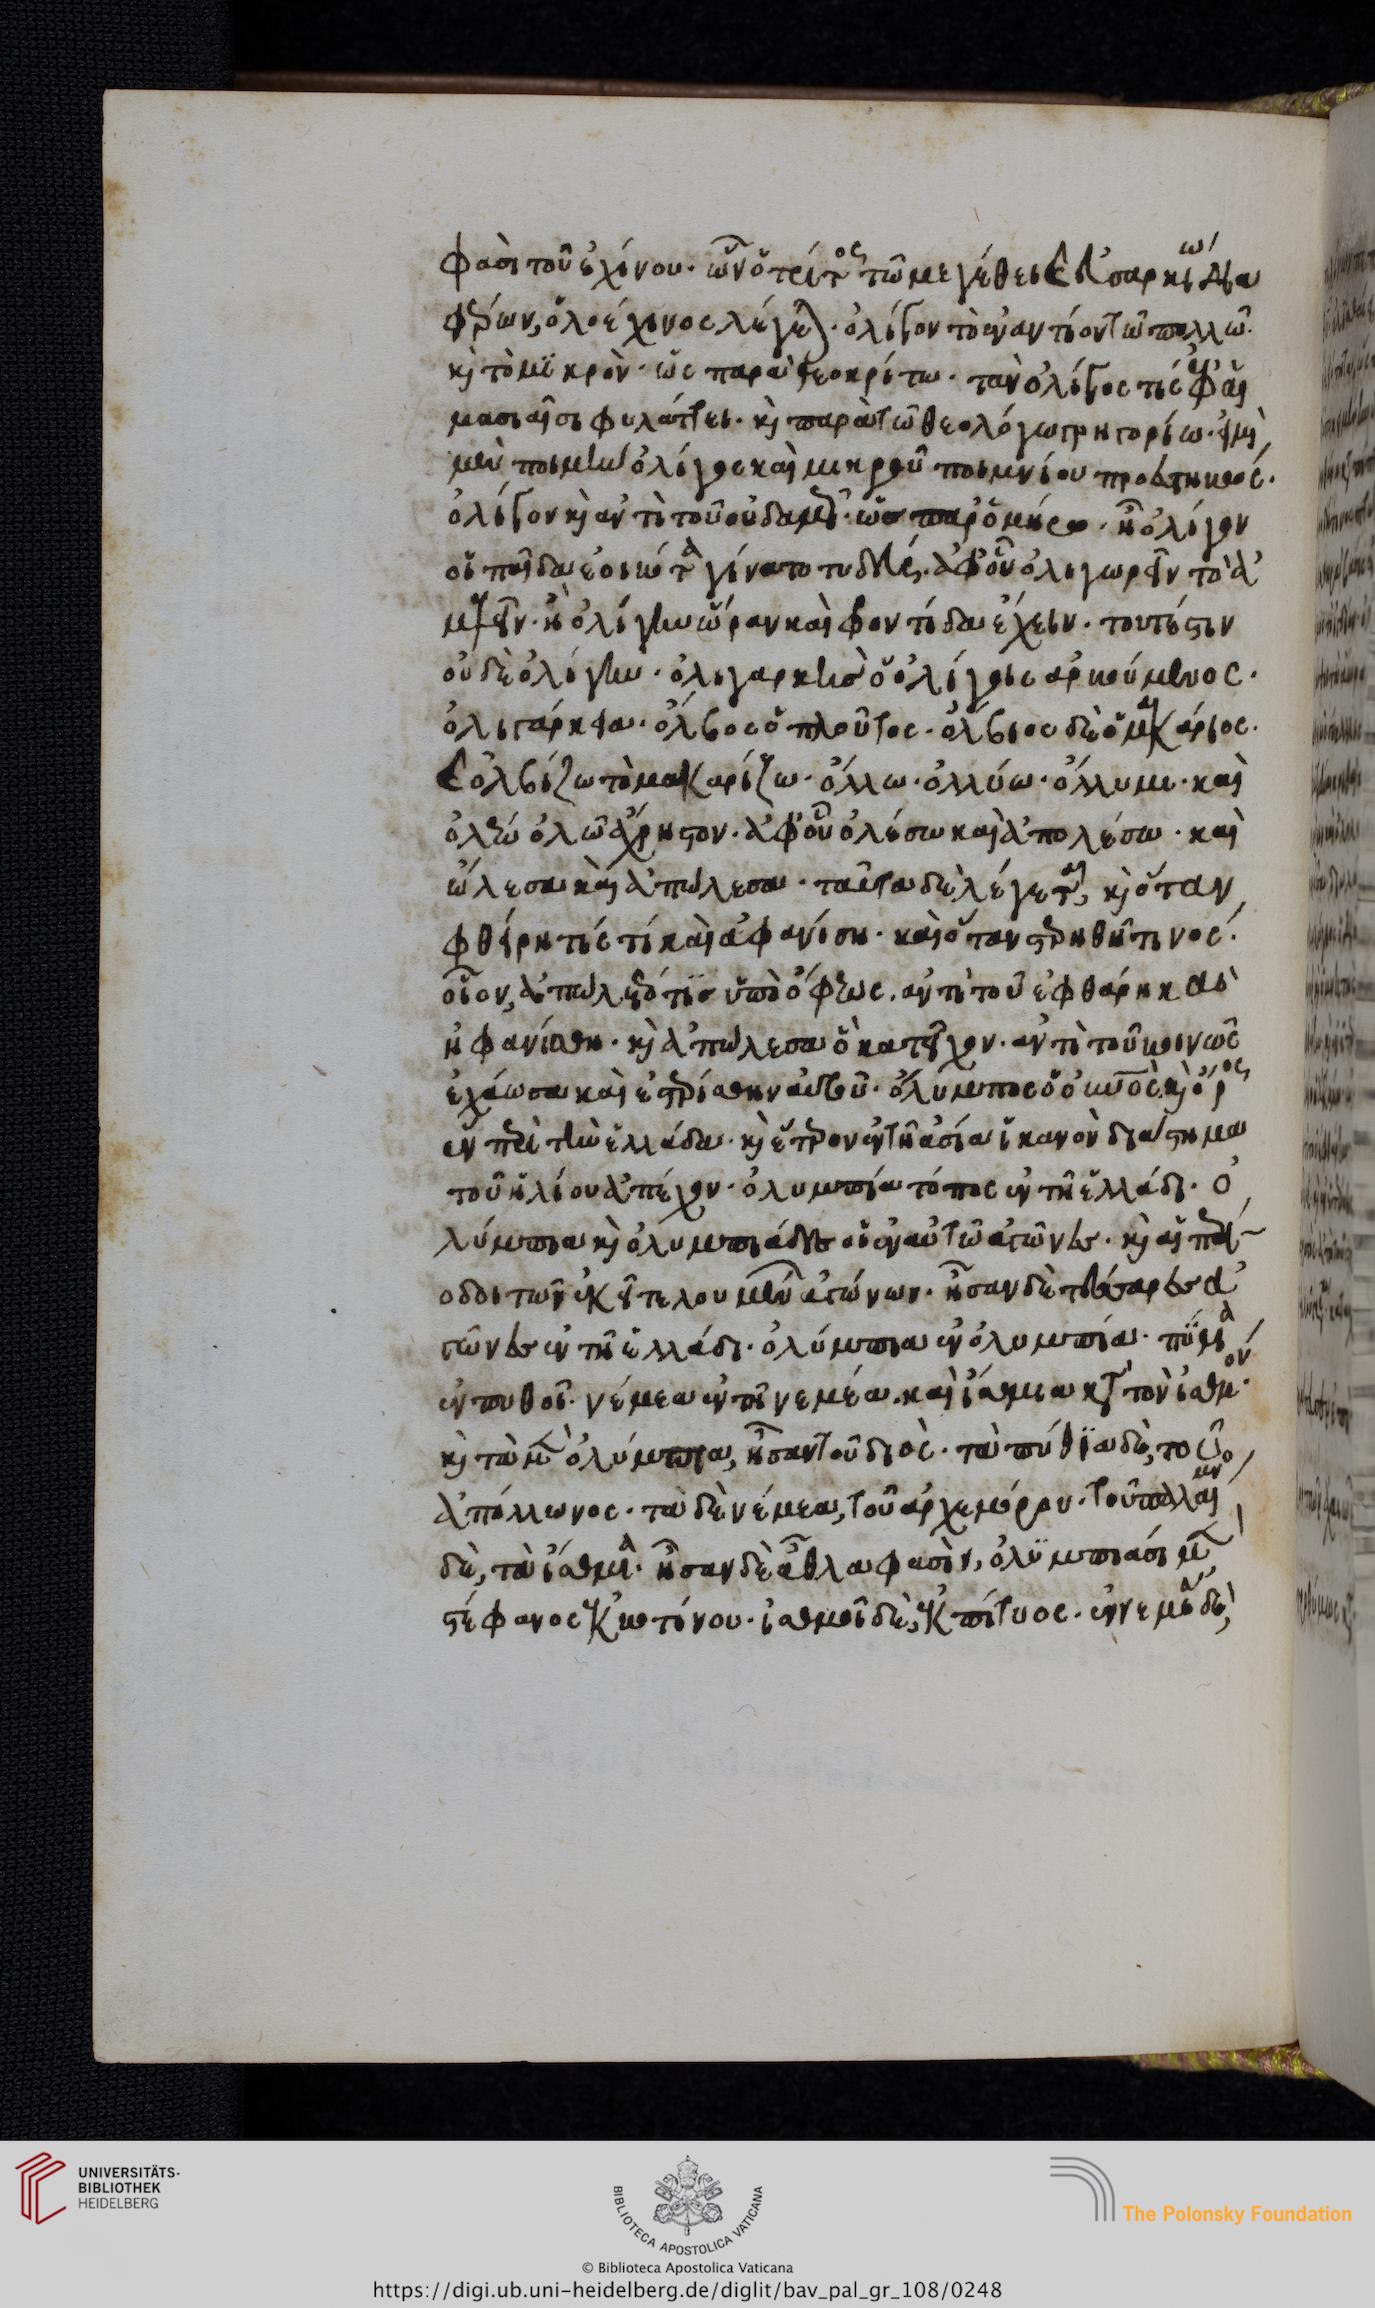 φασὶ τοῦ ἐχίνου. ὧν ὁ τρίτος τῷ μεγέθει καὶ σαρκι
φέρων, ὅλος ἐχῖνος λέγεται. ὀλίγον τὸ ἐναντίον τῷ πολλῷ.
καὶ τὸ μικρὸν. ὡς παρὰ θεοκρίτω. τὰν ὀλίγος τις ἐφ' αἱ
μασιαῖσι φυλάττει. καὶ παρὰ τῷ θεολόγω γρηγορίω. ἐμὲ
μὲν ποιμὴν ὀλίγος καὶ μικροῦ ποιμνίου προεστηκώς.
ὀλίγον καὶ ἀντὶ τοῦ οὐδαμῶς. ὡς παρ' ὁμήρω. ἦ ὀλίγον
οἷ παῖδα ἐοικότα γείνατο τυδεύς. ἀφ' οὗ ὀλιγωρεῖν τὸ ἀ
μελεῖν. ἢ ὀλίγην ὥραν καὶ φροντίδα ἔχειν. τουτέστιν
οὐδὲ ὀλίγην. ὀλιγαρκὴς ὁ ὀλίγοις ἀρκούμενος.
ὀλιγάρκεια. ὄλβος ὁ πλοῦτος. ὄλβιος δὲ ὁ μακάριος.
καὶ ὀλβίζω τὸ μακαρίζω. ὄλλω. ὀλλύω. ὄλλυμι. καὶ
ὀλέω ὀλῶ ἄχρηστον. ἀφ' οὗ ὀλέσω καὶ ἀπολέσω. καὶ
ὤλεσα καὶ ἀπώλεσα. ταῦτα δὲ λέγεται, καὶ ὅταν
φθείρη τίς τί καὶ ἀφανίση. καὶ ὅταν στερηθῆ τινος.
οἷον, ἀπώλετό τις ὑπὸ ὄφεως. ἀντὶ τοῦ ἐφθάρη καὶ
ἠφανίσθη. καὶ ἀπώλεσα ὃ κατεῖχον. ἀντὶ τοῦ κοινῶς
ἐχάωσα καὶ ἐστερήθην αὐτοῦ. ὄλυμπος ὁ οὐνὸς καὶ ὄρος
ἓν περὶ τὴν ἑλλάδα. καὶ ἕτερον ἐν τῆ ἀσία ἱκανὸν διάστημα
τοῦ ἡλίου ἀπέχον. ὀλυμπία τόπος ἐν τῆ ἑλλάδι. ὀ
λύμπια καὶ ὀλυμπιάδες οἱ ἐν αὐτῷ ἀγῶνες. καὶ αἱ περί
οδοι τῶν ἐκεῖ τελουμένων ἀγώνων. ἦσαν δὲ τέσσαρες ἀ
γῶνες ἐν τῆ ἑλλάδι. ὀλύμπια ἐν ὀλυμπία. πύθια
ἐν πυθοῖ. νέμεα ἐν τῆ νεμέα. καὶ ἴσθμια κατὰ τὸν ἰσθμόν.
καὶ τὰ μὲν ὀλύμπια, ἦσαν τοῦ διὸς. τὰ πύθια δὲ, τοῦ
ἀπόλλωνος. τὰ δὲ νέμεα, τοῦ ἀρχεμόρου. τοῦ παλαίμονος
δὲ, τὰ ἴσθμια. ἦσαν δὲ ἆθλα φασὶν, ὀλυμπιάσι μὲν
στέφανος ἐκ κοτίνου. ἰσθμοῖ δὲ, ἐκ πίτυος. ἐν νεμέα δὲ,
UNIVERSITÄTS-
BIBLIOTHEK
HEIDELBERG
BIBLIOTECA APOSTOLICA VATICANA
The Polonsky Foundation
© Biblioteca Apostolica Vaticana
https://digi.ub.uni-heidelberg.de/diglit/bav_pal_gr_108/0248